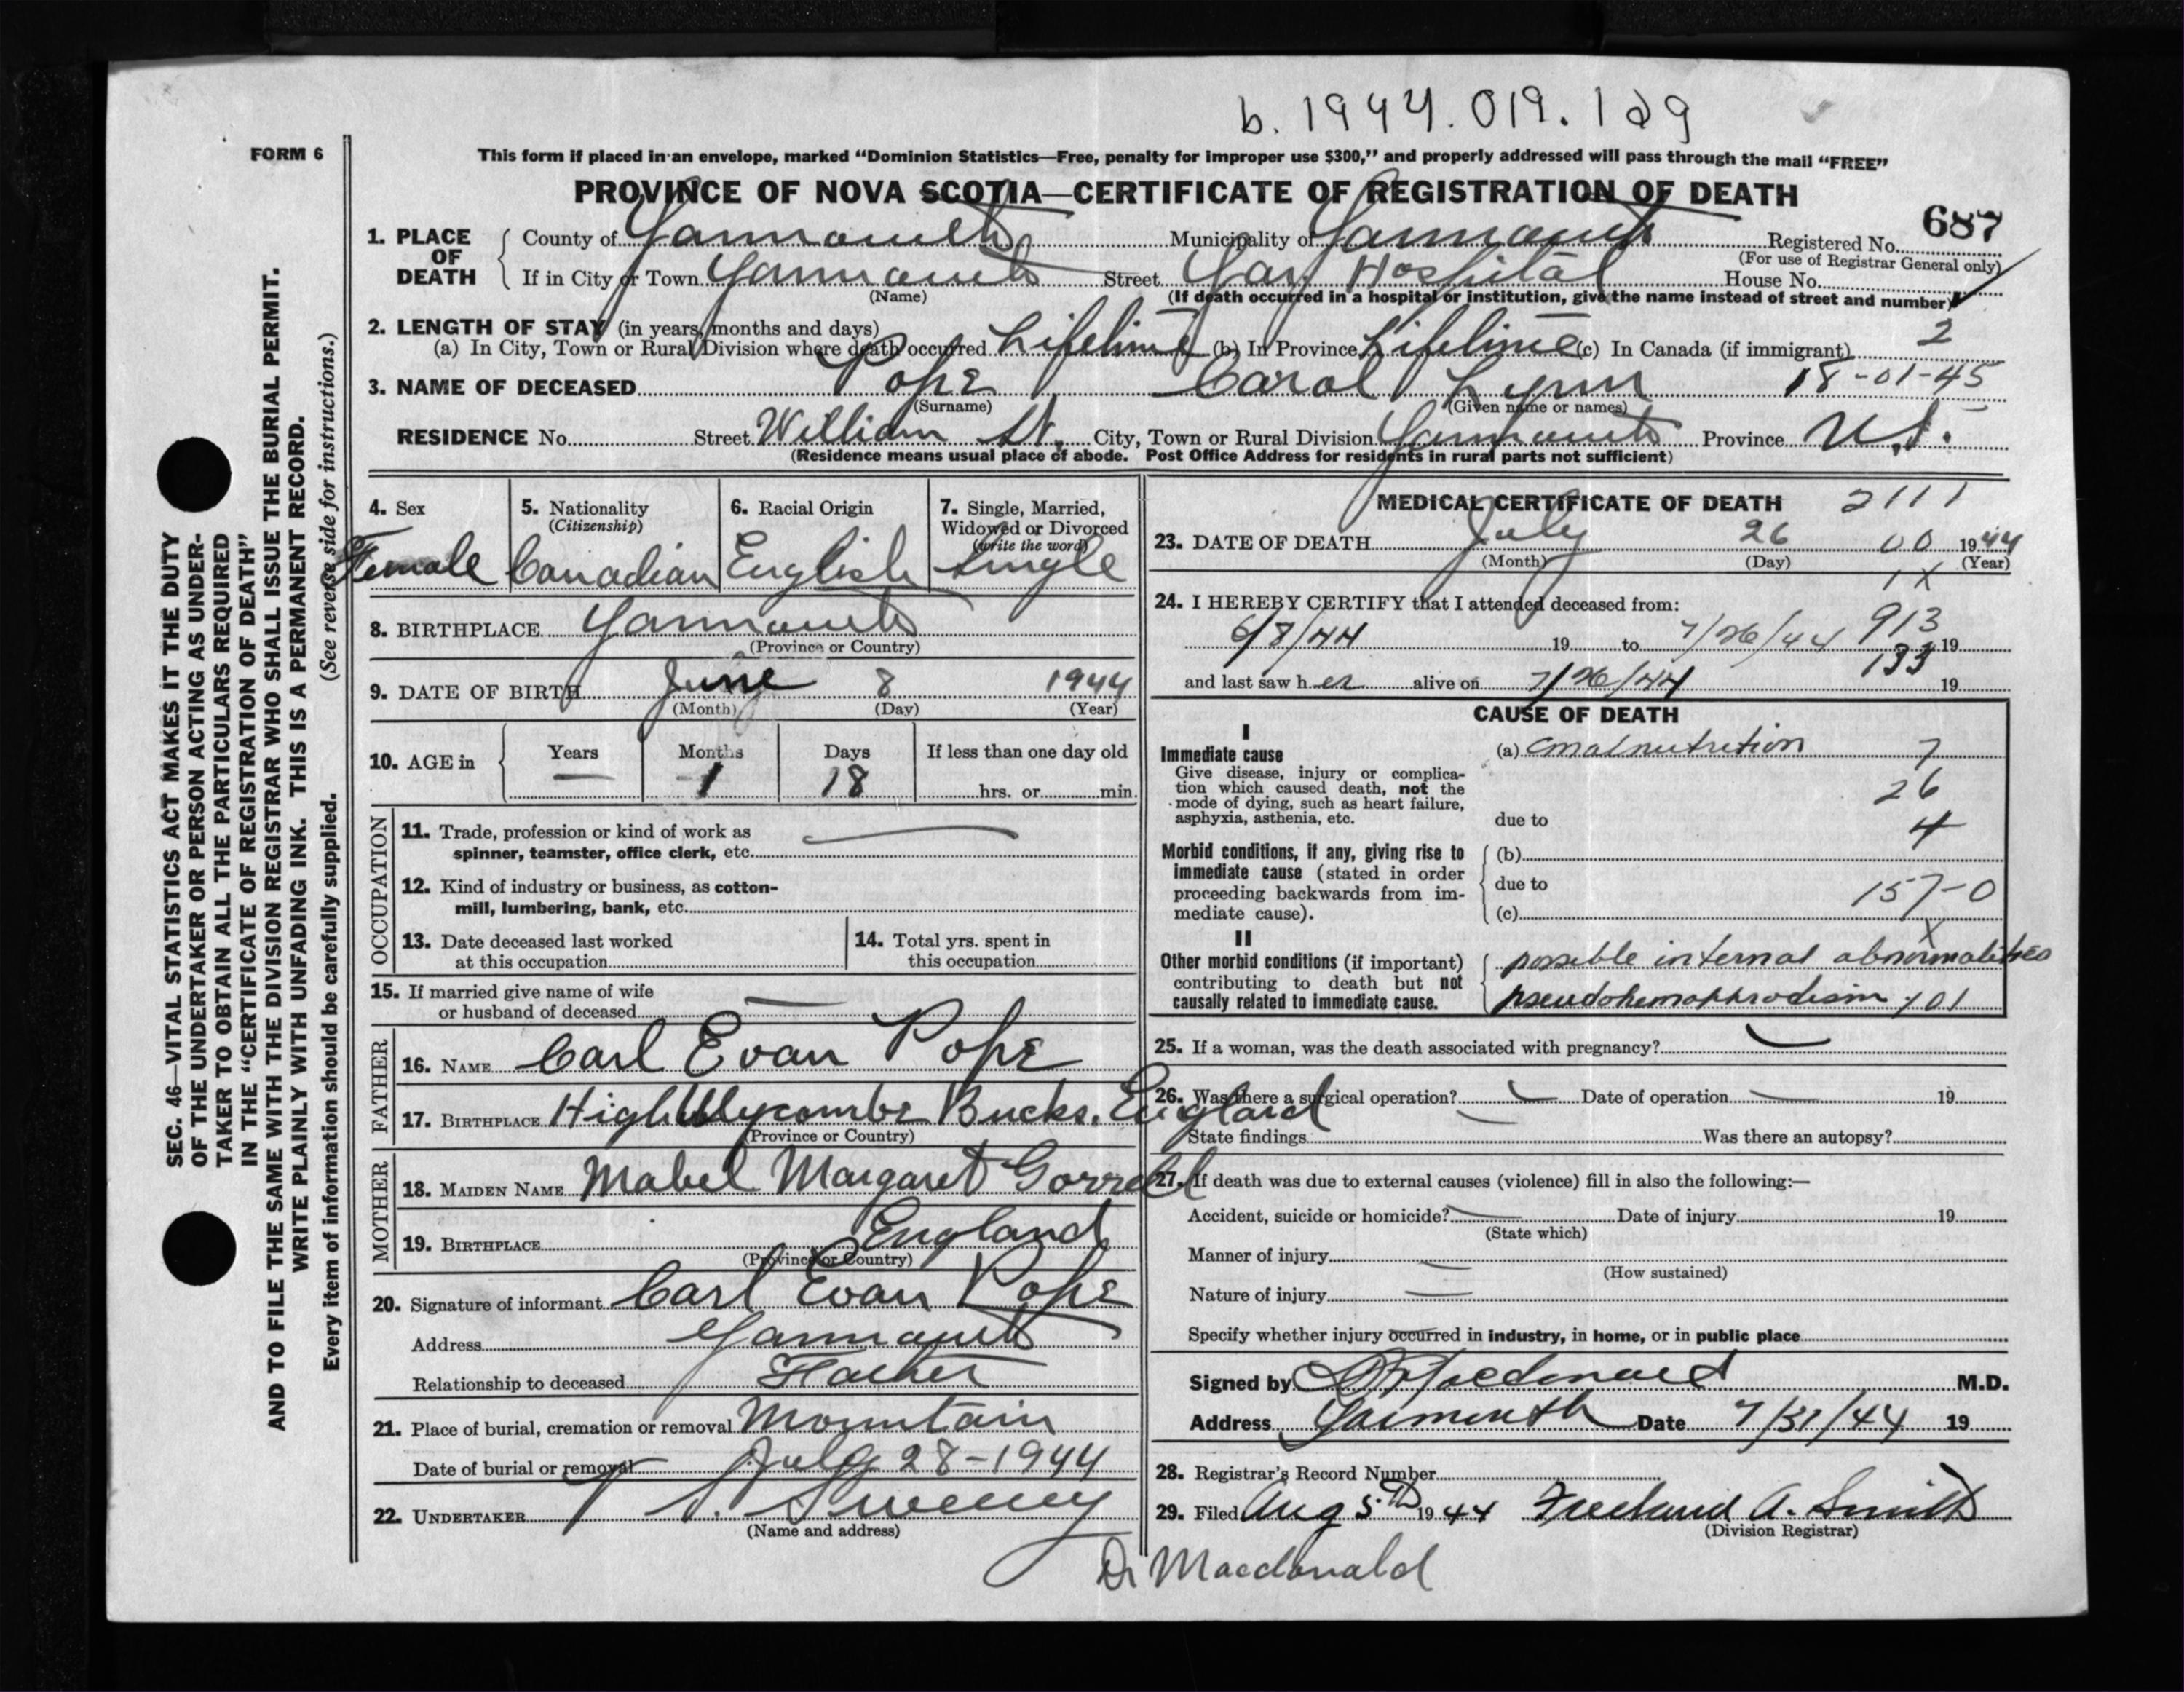 b. 1944.019.129
FORM 6
This form if placed in an envelope, marked "Dominion Statistics—Free, penalty for improper use $300," and properly addressed will pass through the mail "FREE"
PROVINCE OF NOVA SCOTIA—CERTIFICATE OF REGISTRATION OF DEATH
687
1. PLACE OF DEATH County of Yarmouth Municipality of Yarmouth Registered No.
(For use of Registrar General only)
If in City or Town Yarmouth Street Yar. Hospital House No.
(Name) (If death occurred in a hospital or institution, give the name instead of street and number)
2. LENGTH OF STAY (in years, months and days)
(a) In City, Town or Rural Division where death occurred Lifetime (b) In Province Lifetime (c) In Canada (if immigrant) 2
3. NAME OF DECEASED Pope Carol Lynn 18-01-45
(Surname) (Given name or names)
RESIDENCE No. Street William St. City, Town or Rural Division Yarmouth Province N.S.
(Residence means usual place of abode. Post Office Address for residents in rural parts not sufficient)
4. Sex Female
5. Nationality (Citizenship) Canadian
6. Racial Origin English
7. Single, Married, Widowed or Divorced (write the word) Single
8. BIRTHPLACE Yarmouth
(Province or Country)
9. DATE OF BIRTH June 8 1944
(Month) (Day) (Year)
10. AGE in Years — Months 1 Days 18 If less than one day old hrs. or min.
OCCUPATION
11. Trade, profession or kind of work as spinner, teamster, office clerk, etc. —
12. Kind of industry or business, as cotton-mill, lumbering, bank, etc.
13. Date deceased last worked at this occupation
14. Total yrs. spent in this occupation
15. If married give name of wife or husband of deceased —
FATHER
16. NAME Carl Evan Pope
17. BIRTHPLACE High Wycombe Bucks. England
(Province or Country)
MOTHER
18. MAIDEN NAME Mabel Margaret Gorrell
19. BIRTHPLACE England
(Province or Country)
20. Signature of informant Carl Evan Pope
Address Yarmouth
Relationship to deceased Father
21. Place of burial, cremation or removal Mountain
Date of burial or removal July 28-1944
22. UNDERTAKER Sweeney
(Name and address)
MEDICAL CERTIFICATE OF DEATH 2111
23. DATE OF DEATH July 26 00 1944
(Month) (Day) (Year)
1X
24. I HEREBY CERTIFY that I attended deceased from:
6/8/44 19 to 7/26/44 913 19
133
and last saw her alive on 7/26/44 19
CAUSE OF DEATH
I
Immediate cause (a) malnutrition 7
Give disease, injury or complication which caused death, not the mode of dying, such as heart failure, asphyxia, asthenia, etc.
26
due to 4
Morbid conditions, if any, giving rise to immediate cause (stated in order proceeding backwards from immediate cause).
(b)
due to 157-0
(c)
X
II
Other morbid conditions (if important) contributing to death but not causally related to immediate cause.
possible internal abnormalities
pseudohermaphrodism 101
25. If a woman, was the death associated with pregnancy? —
26. Was there a surgical operation? — Date of operation — 19
State findings Was there an autopsy?
27. If death was due to external causes (violence) fill in also the following:—
Accident, suicide or homicide? — Date of injury 19
(State which)
Manner of injury —
(How sustained)
Nature of injury —
Specify whether injury occurred in industry, in home, or in public place
Signed by Macdonald M.D.
Address Yarmouth Date 7/31/44 19
28. Registrar's Record Number
29. Filed Aug 5th 1944 Freeland A. Smith
(Division Registrar)
Dr Macdonald
SEC. 46—VITAL STATISTICS ACT MAKES IT THE DUTY
OF THE UNDERTAKER OR PERSON ACTING AS UNDER-
TAKER TO OBTAIN ALL THE PARTICULARS REQUIRED
IN THE "CERTIFICATE OF REGISTRATION OF DEATH"
AND TO FILE THE SAME WITH THE DIVISION REGISTRAR WHO SHALL ISSUE THE BURIAL PERMIT.
WRITE PLAINLY WITH UNFADING INK. THIS IS A PERMANENT RECORD.
Every item of information should be carefully supplied. (See reverse side for instructions.)